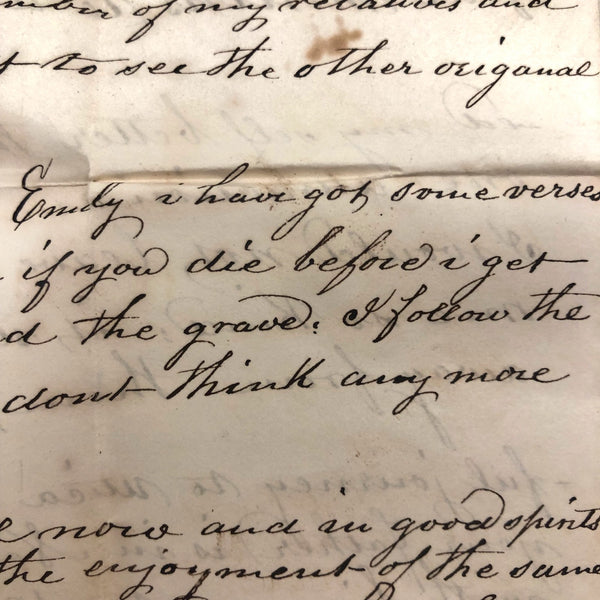 of my relatives and
to see the other origanal
Emily i have got some verses
if you die before i get
the grave. I follow the
dont think any more
now and in good spirits
the enjoyment of the same